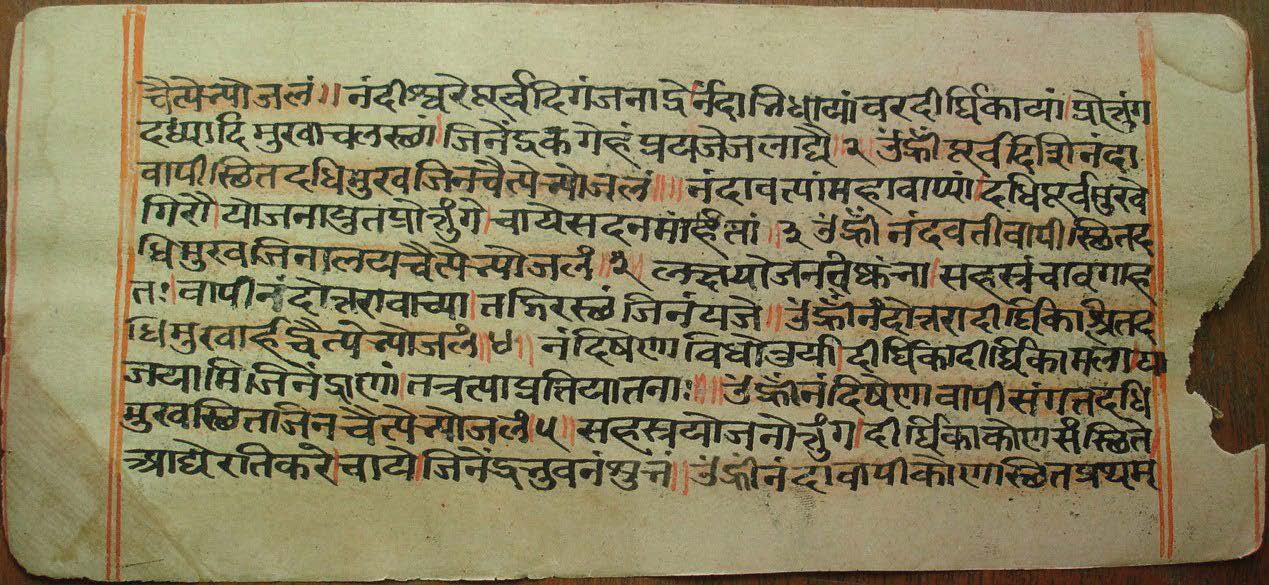 चैत्येन्योजलं॥ नंदीश्वरेपूर्वदिगंजनाद्रेर्नंदाभिधायांवरदीर्घिकायां। प्रोत्तुंग
दध्यादिमुखाचलस्थं।जिनेंद्रकगेहंप्रयजेजलाद्यै॥२ उंह्रींपूर्वदिशिनंदा
वापीस्थितदधिमुखजिनचैत्येन्योजलं॥॥ नंदावत्यांमहावाप्यां।दधिपूर्वमुखे
गिरौ।योजनायुतप्रोत्तुंगे।चायेसदनमर्हतां॥३ उंह्रींनंदवतीवापीस्थितद
धिमुखजिनालयचैत्येन्योजलं॥३ सहस्रंचावगाह
त।वापीनंदोत्तरावाच्या।तजिरस्थंजिनंयजे॥उंह्रींनंदोत्तरादीर्घिकाश्रितद
धिमुखार्हचैत्येन्योजलं॥४॥ नंदिषेणविधौ दीर्घिकादीर्घिकामला।या
जयामिजिनेंद्राणां।तत्रत्याप्रतियातनाः॥॥उंह्रींनंदिषेणावापीसंगतदधि
मुखस्थितजिनचैत्येन्योजलं।५॥ सहस्रयोजनोत्तुंग।दीर्घिकाकोणसंस्थिते।
आद्येरतिकरे।चाये।जिनेंद्रभुवनंशुभं॥उंह्रींनंदावापीकोणस्थितप्रथम